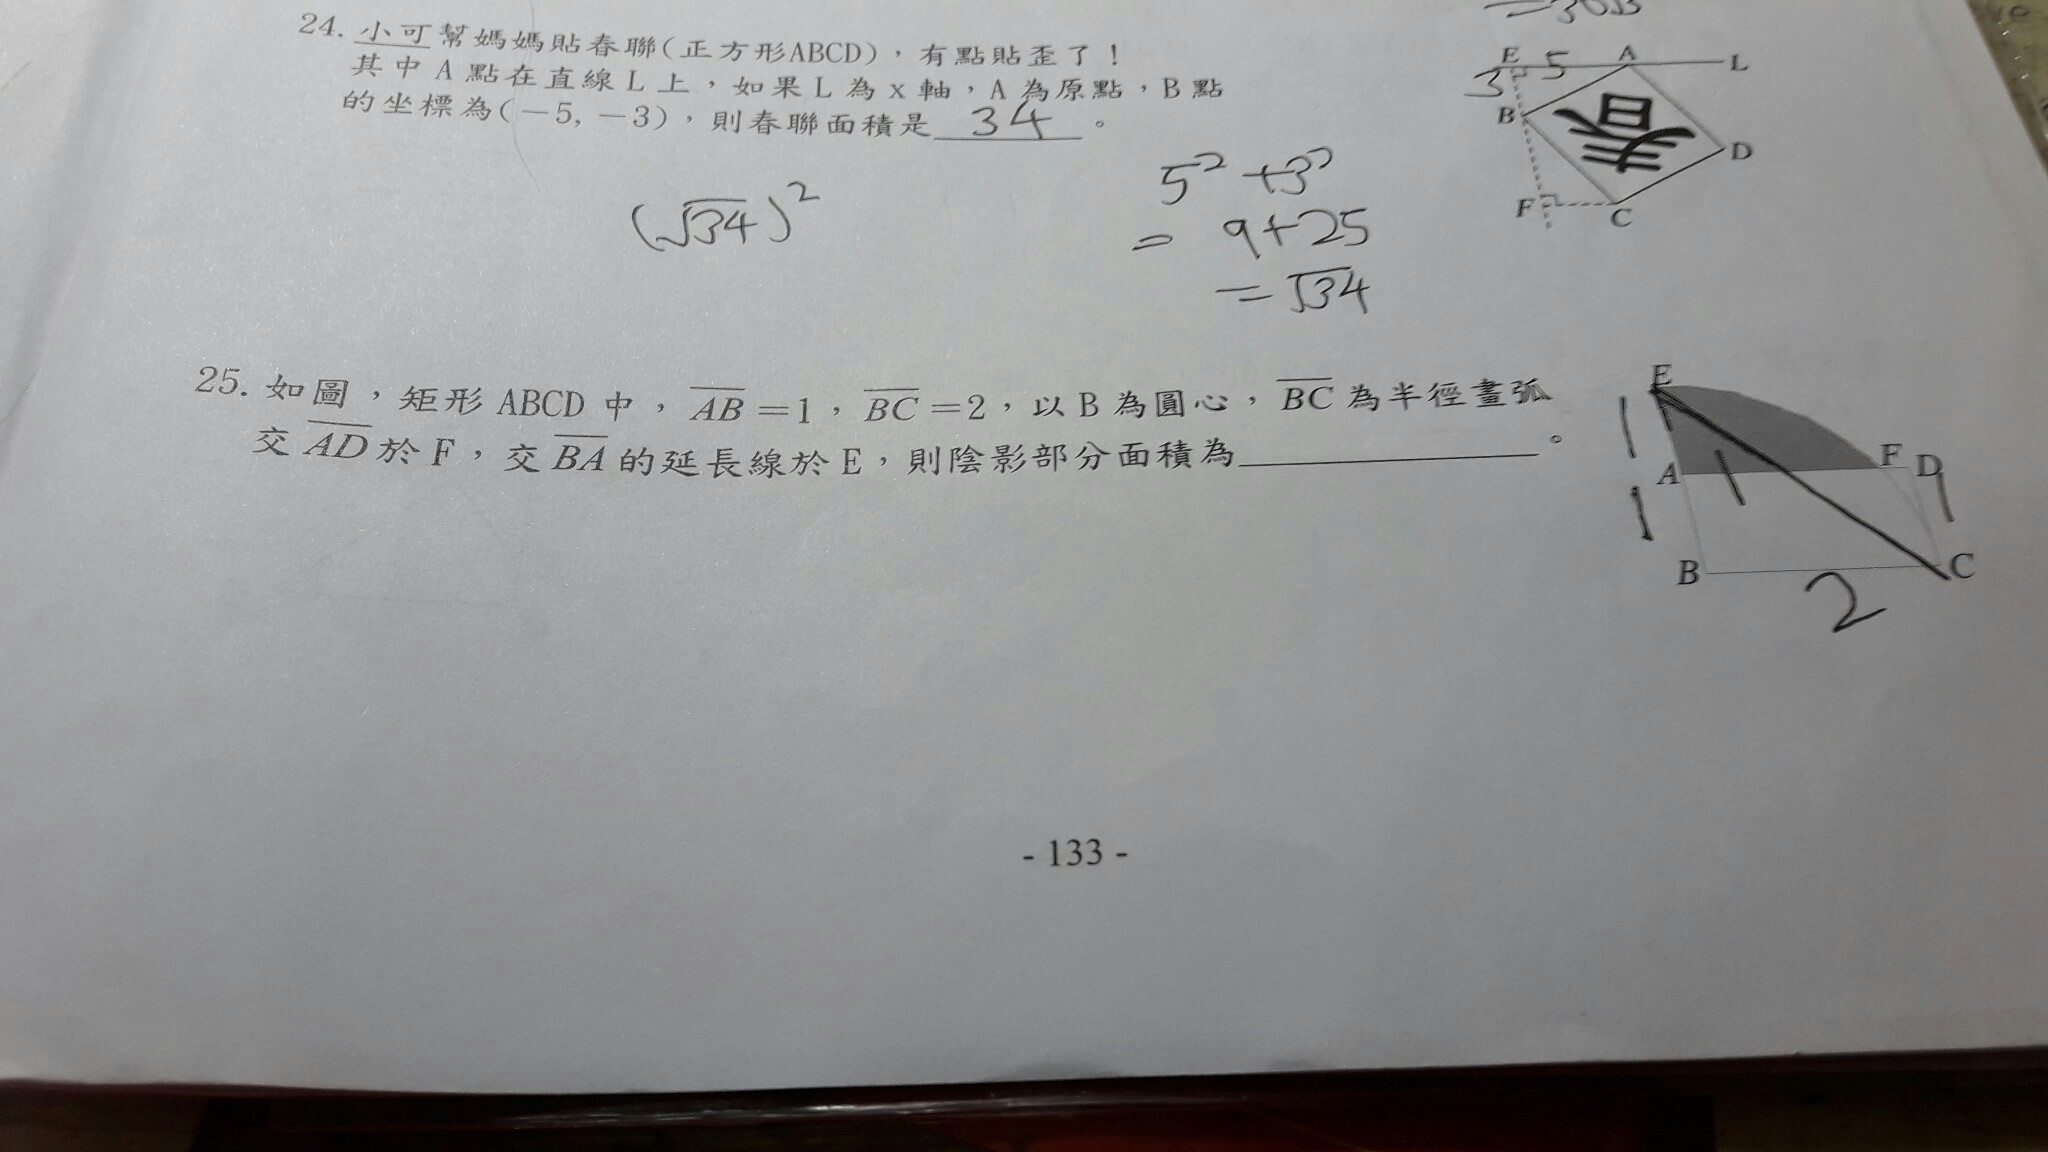 24. 小可幫媽媽貼春聯(正方形ABCD)，有點貼歪了！
其中 A 點在直線 L 上，如果 L 為 x 軸，A 為原點，B 點
的坐標為(－5, －3)，則春聯面積是 34 。
(√34)²
5² +3²
= 9+25
= √34
E 5 A L
3
B
春
D
F
C
25. 如圖，矩形 ABCD 中，AB＝1，BC＝2，以 B 為圓心，BC 為半徑畫弧
交 AD 於 F，交 BA 的延長線於 E，則陰影部分面積為＿＿＿＿＿。
E
1
A
F D
1
1
B
C
2
- 133 -